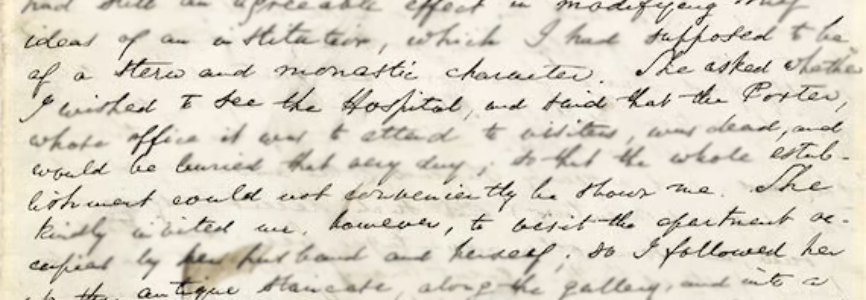 had still an agreeable effect in modifying my
ideas of an institution, which I had supposed to be
of a stern and monastic character. She asked whether
I wished to see the Hospital, and said that the Porter,
whose office it was to attend to visitors, was dead, and
would be buried that very day; so that the whole estab-
lishment could not conveniently be shown me. She
kindly invited me, however, to visit the apartment oc-
cupied by her husband and herself; so I followed her
up the antique staircase, along the gallery, and into a